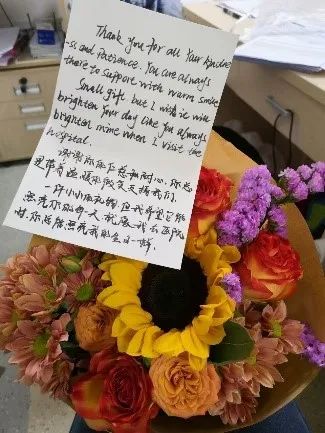 Thank you for all Your kindne
-ss and Patience. You are always
there to support with warm smile
Small gift but I wish it will
brighten your day like you always
brighten mine when I visit the
hospital.
谢谢你所有
总
是带着温暖
我们
一
小小
希望它能
照亮你的每一天 就像我
医院
时 你总
照亮我的
一样